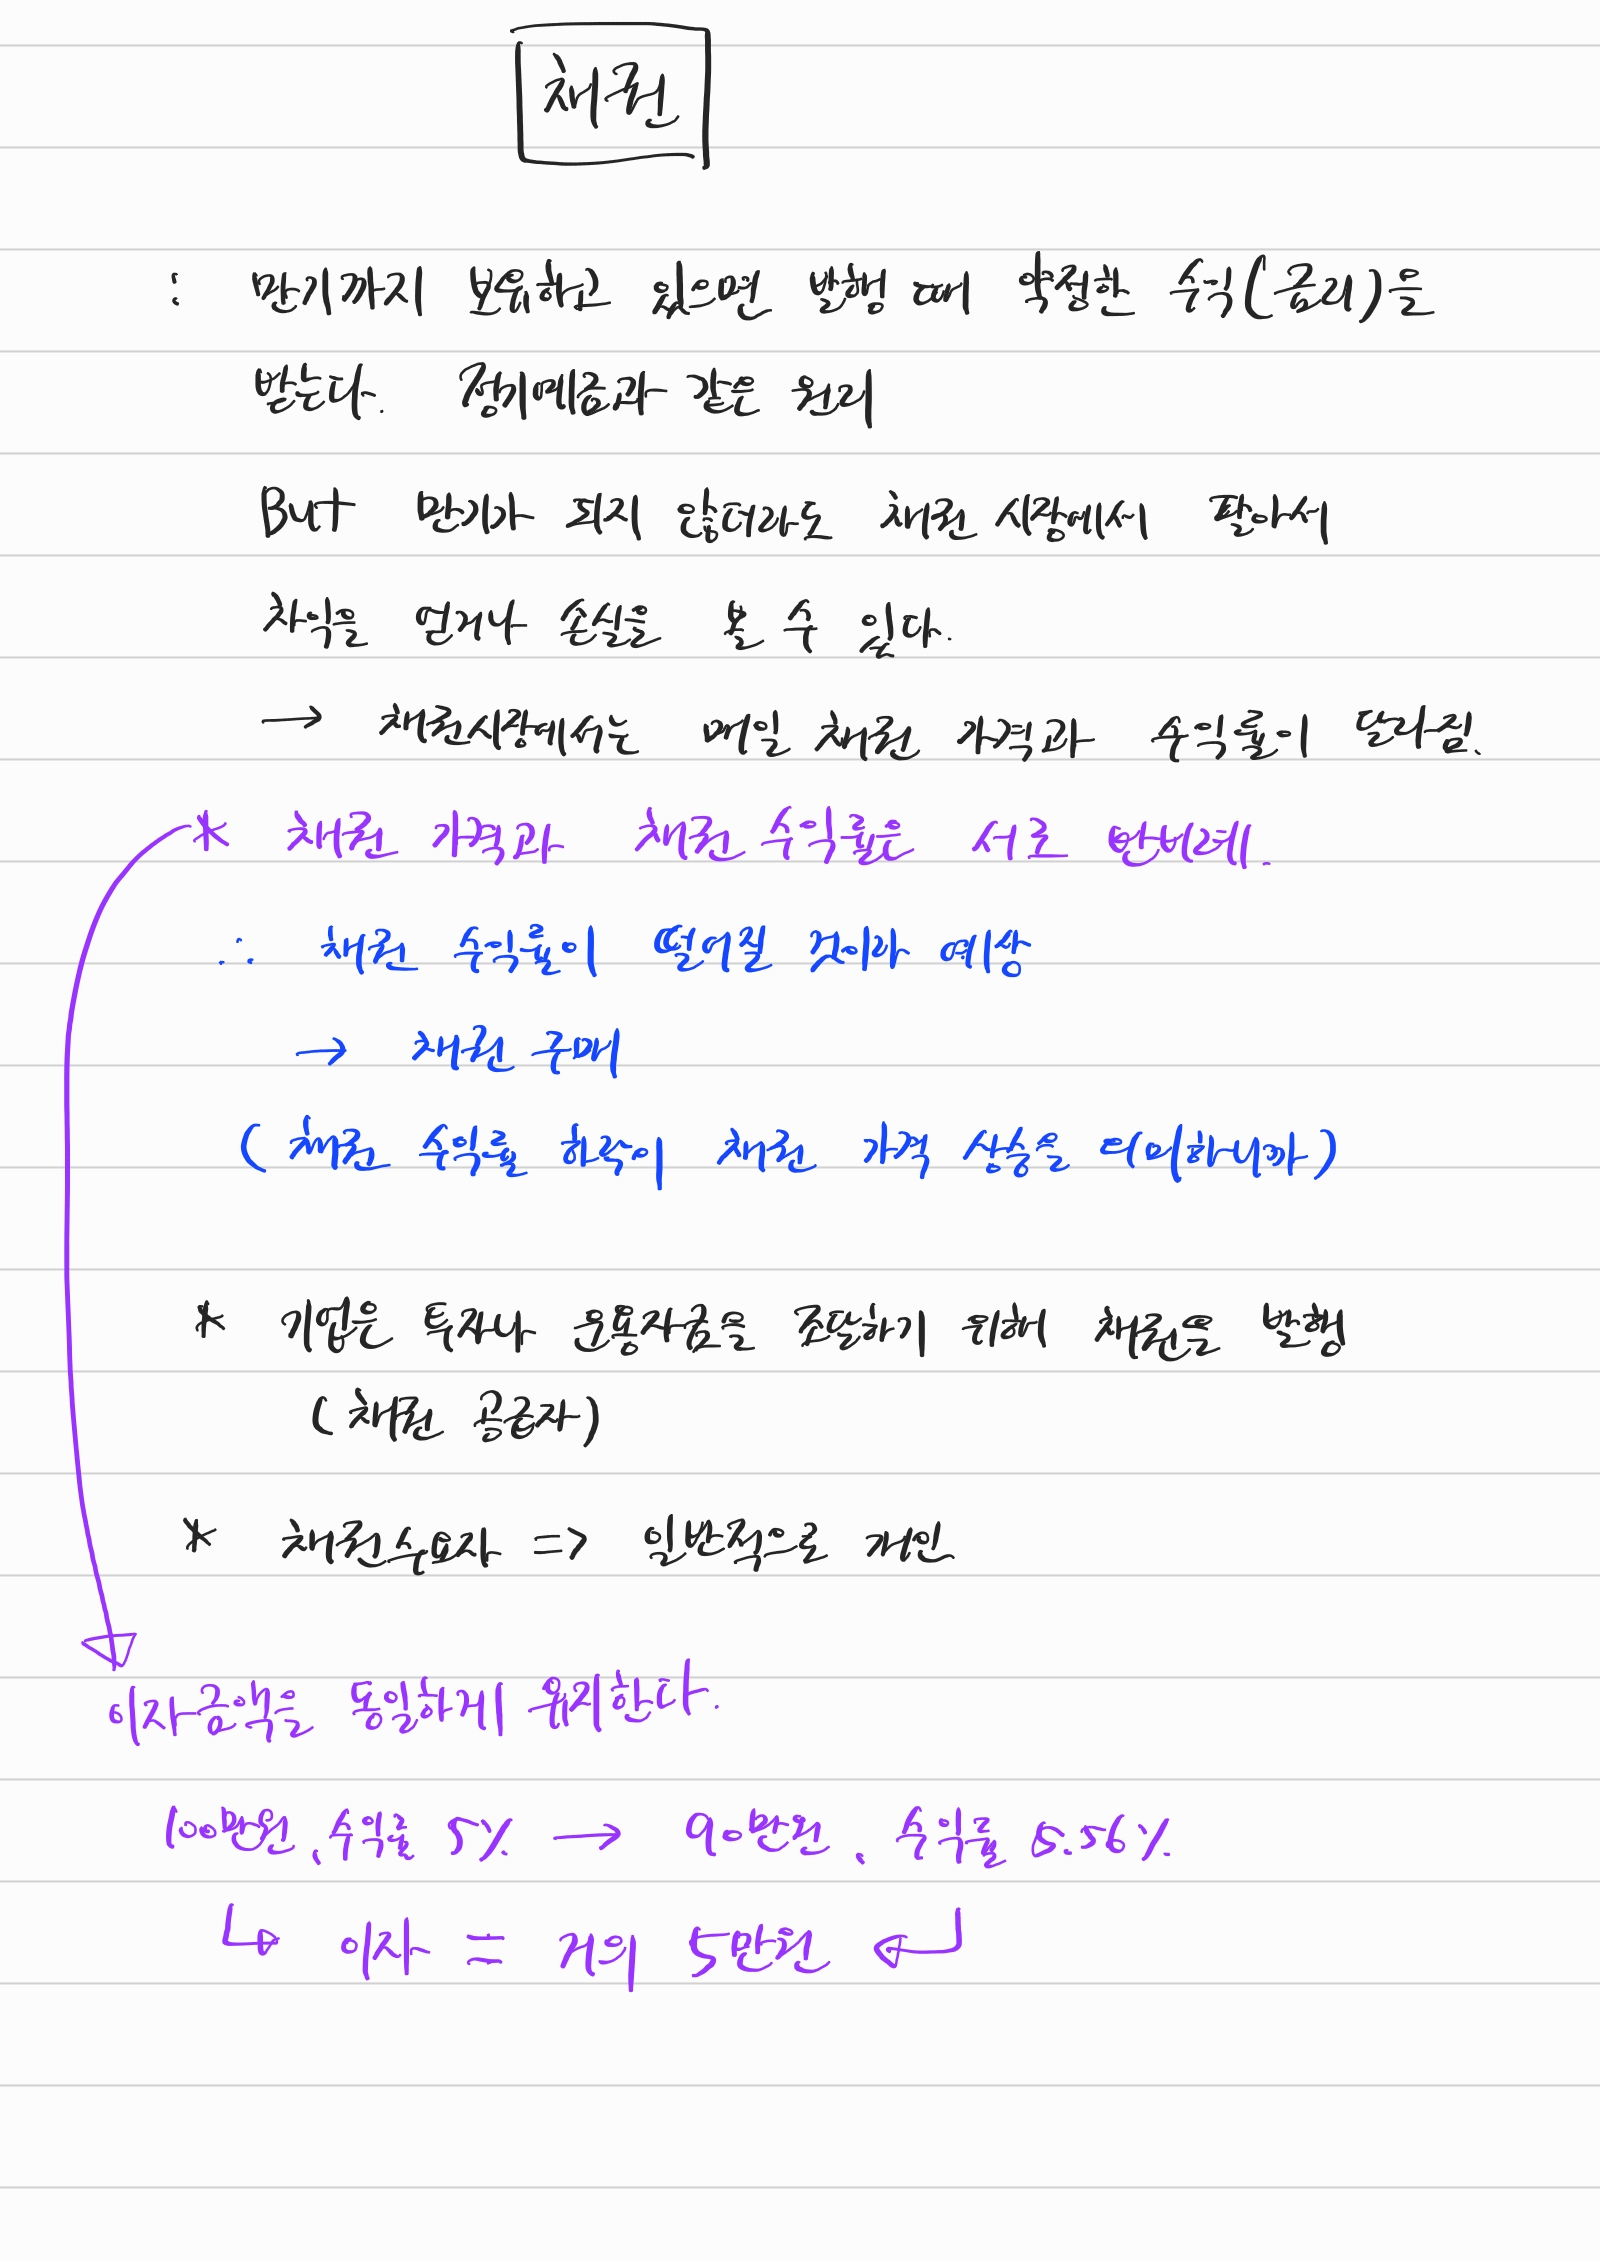 채권
: 만기까지 보유하고 있으면 발행 때 약정한 수익(금리)을
받는다. 정기예금과 같은 원리
But 만기가 되지 않더라도 채권 시장에서 팔아서
차익을 얻거나 손실을 볼 수 있다.
→ 채권시장에서는 매일 채권 가격과 수익률이 달라짐.
* 채권 가격과 채권 수익률은 서로 반비례.
∴ 채권 수익률이 떨어질 것이라 예상
→ 채권 구매
( 채권 수익률 하락이 채권 가격 상승을 의미하니까 )
* 기업은 투자나 운용자금을 조달하기 위해 채권을 발행
( 채권 공급자)
* 채권수요자 => 일반적으로 개인
이자금액을 동일하게 유지한다.
100만원, 수익률 5% → 90만원, 수익률 5.56%
↳ 이자 = 거의 5만원 ↲